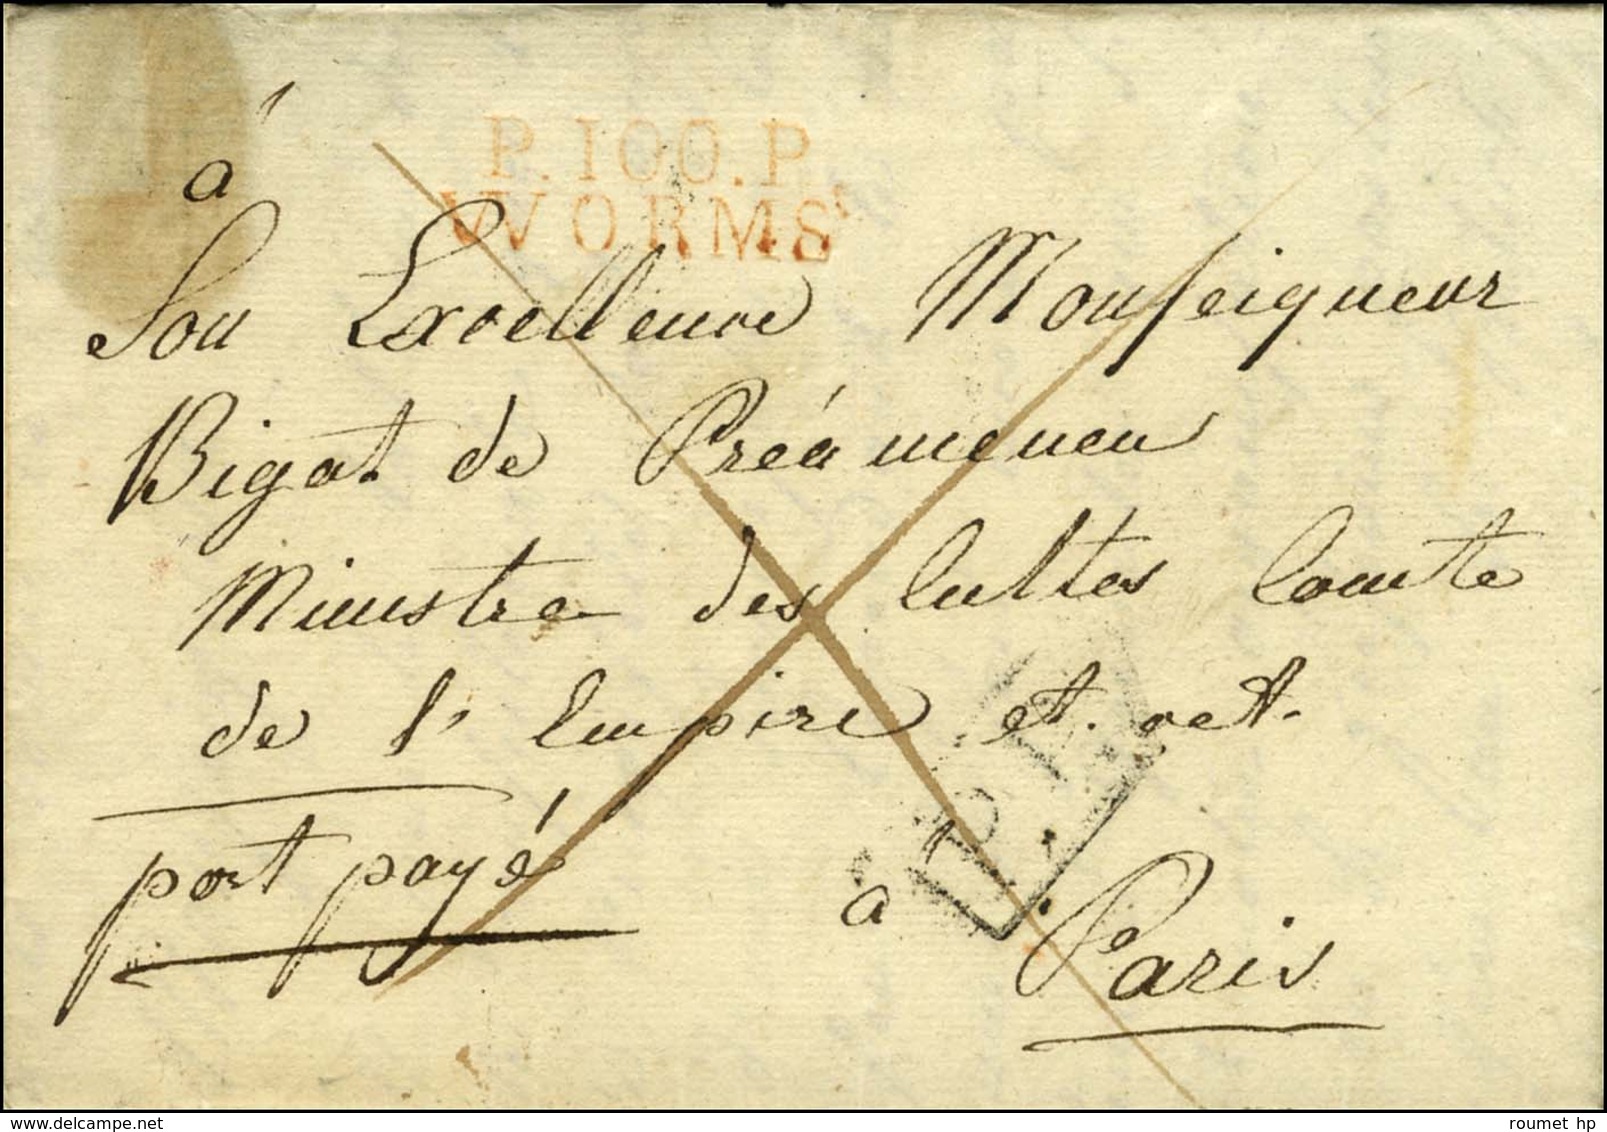 P.100.P.
WORMS
à
Son Excellence Monseigneur
Bigot de Préámeneu
Ministre des Cultes Comte
de l'Empire et. cet.
port payé
P.P.
a Paris
roumet hp